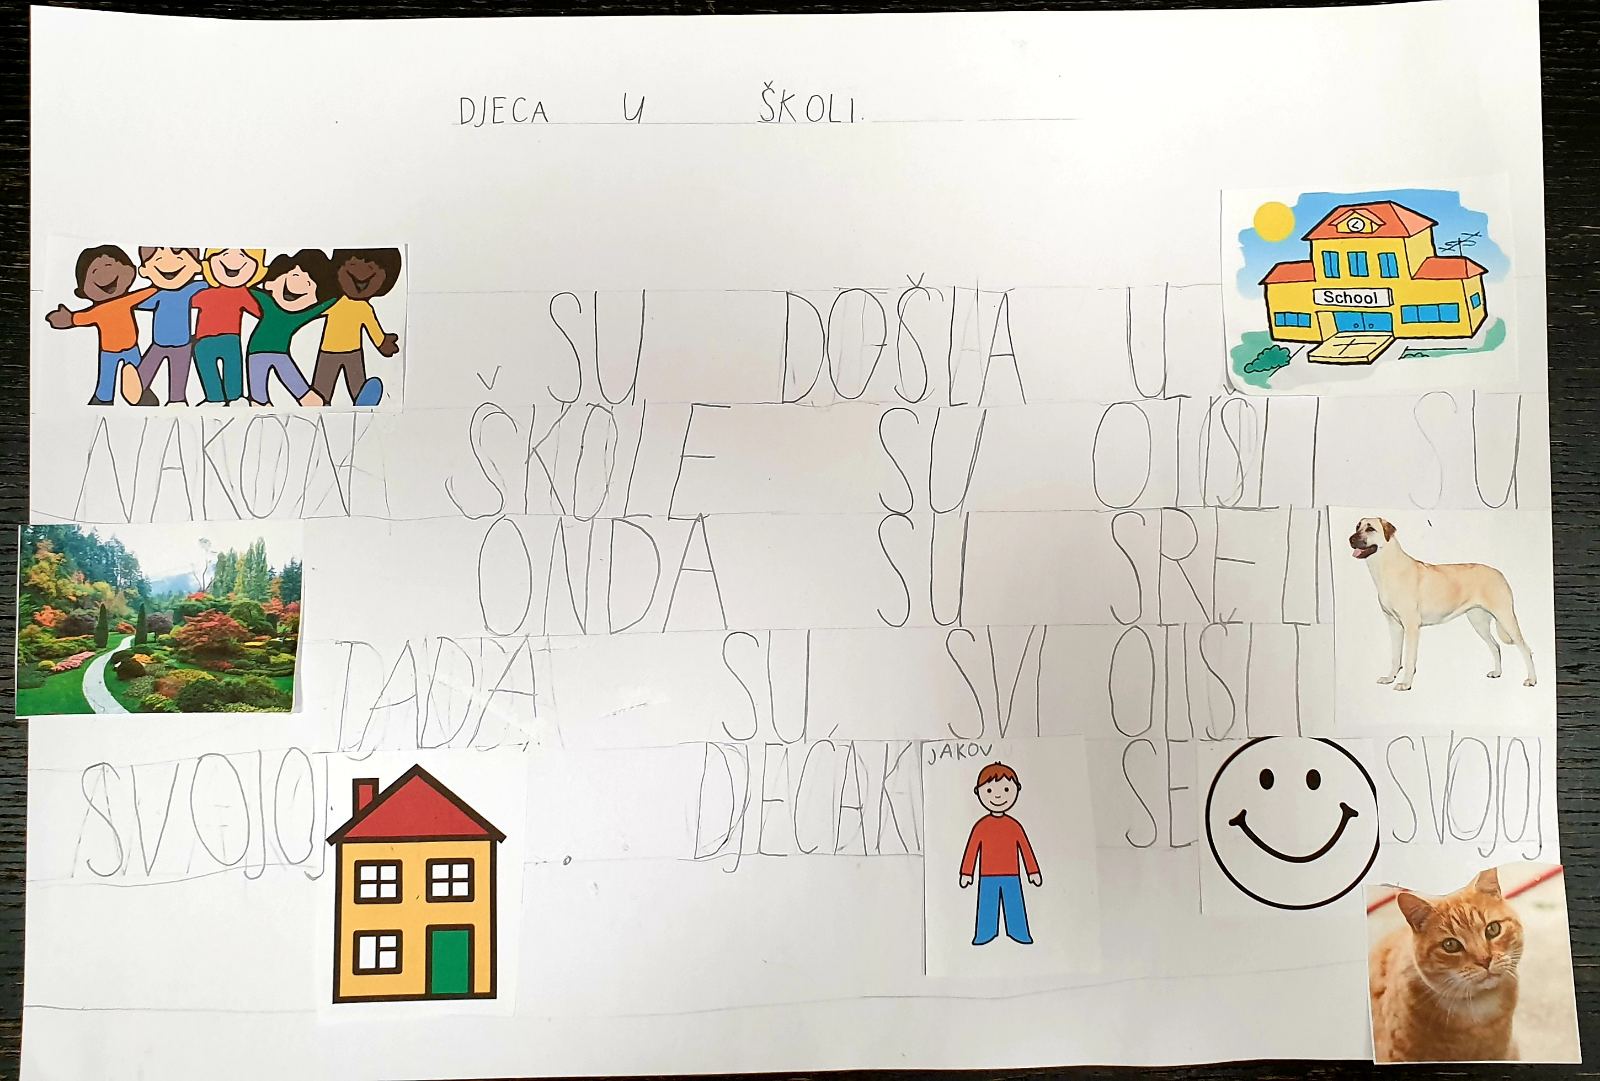 DJECA U ŠKOLI.
School
SU DOŠLA U
NAKON ŠKOLE SU OTIŠLI SU
ONDA SU SRELI
TADA SU SVI OTIŠLI
SVOJOJ . DJEČAK JAKOV SE SVOJOJ